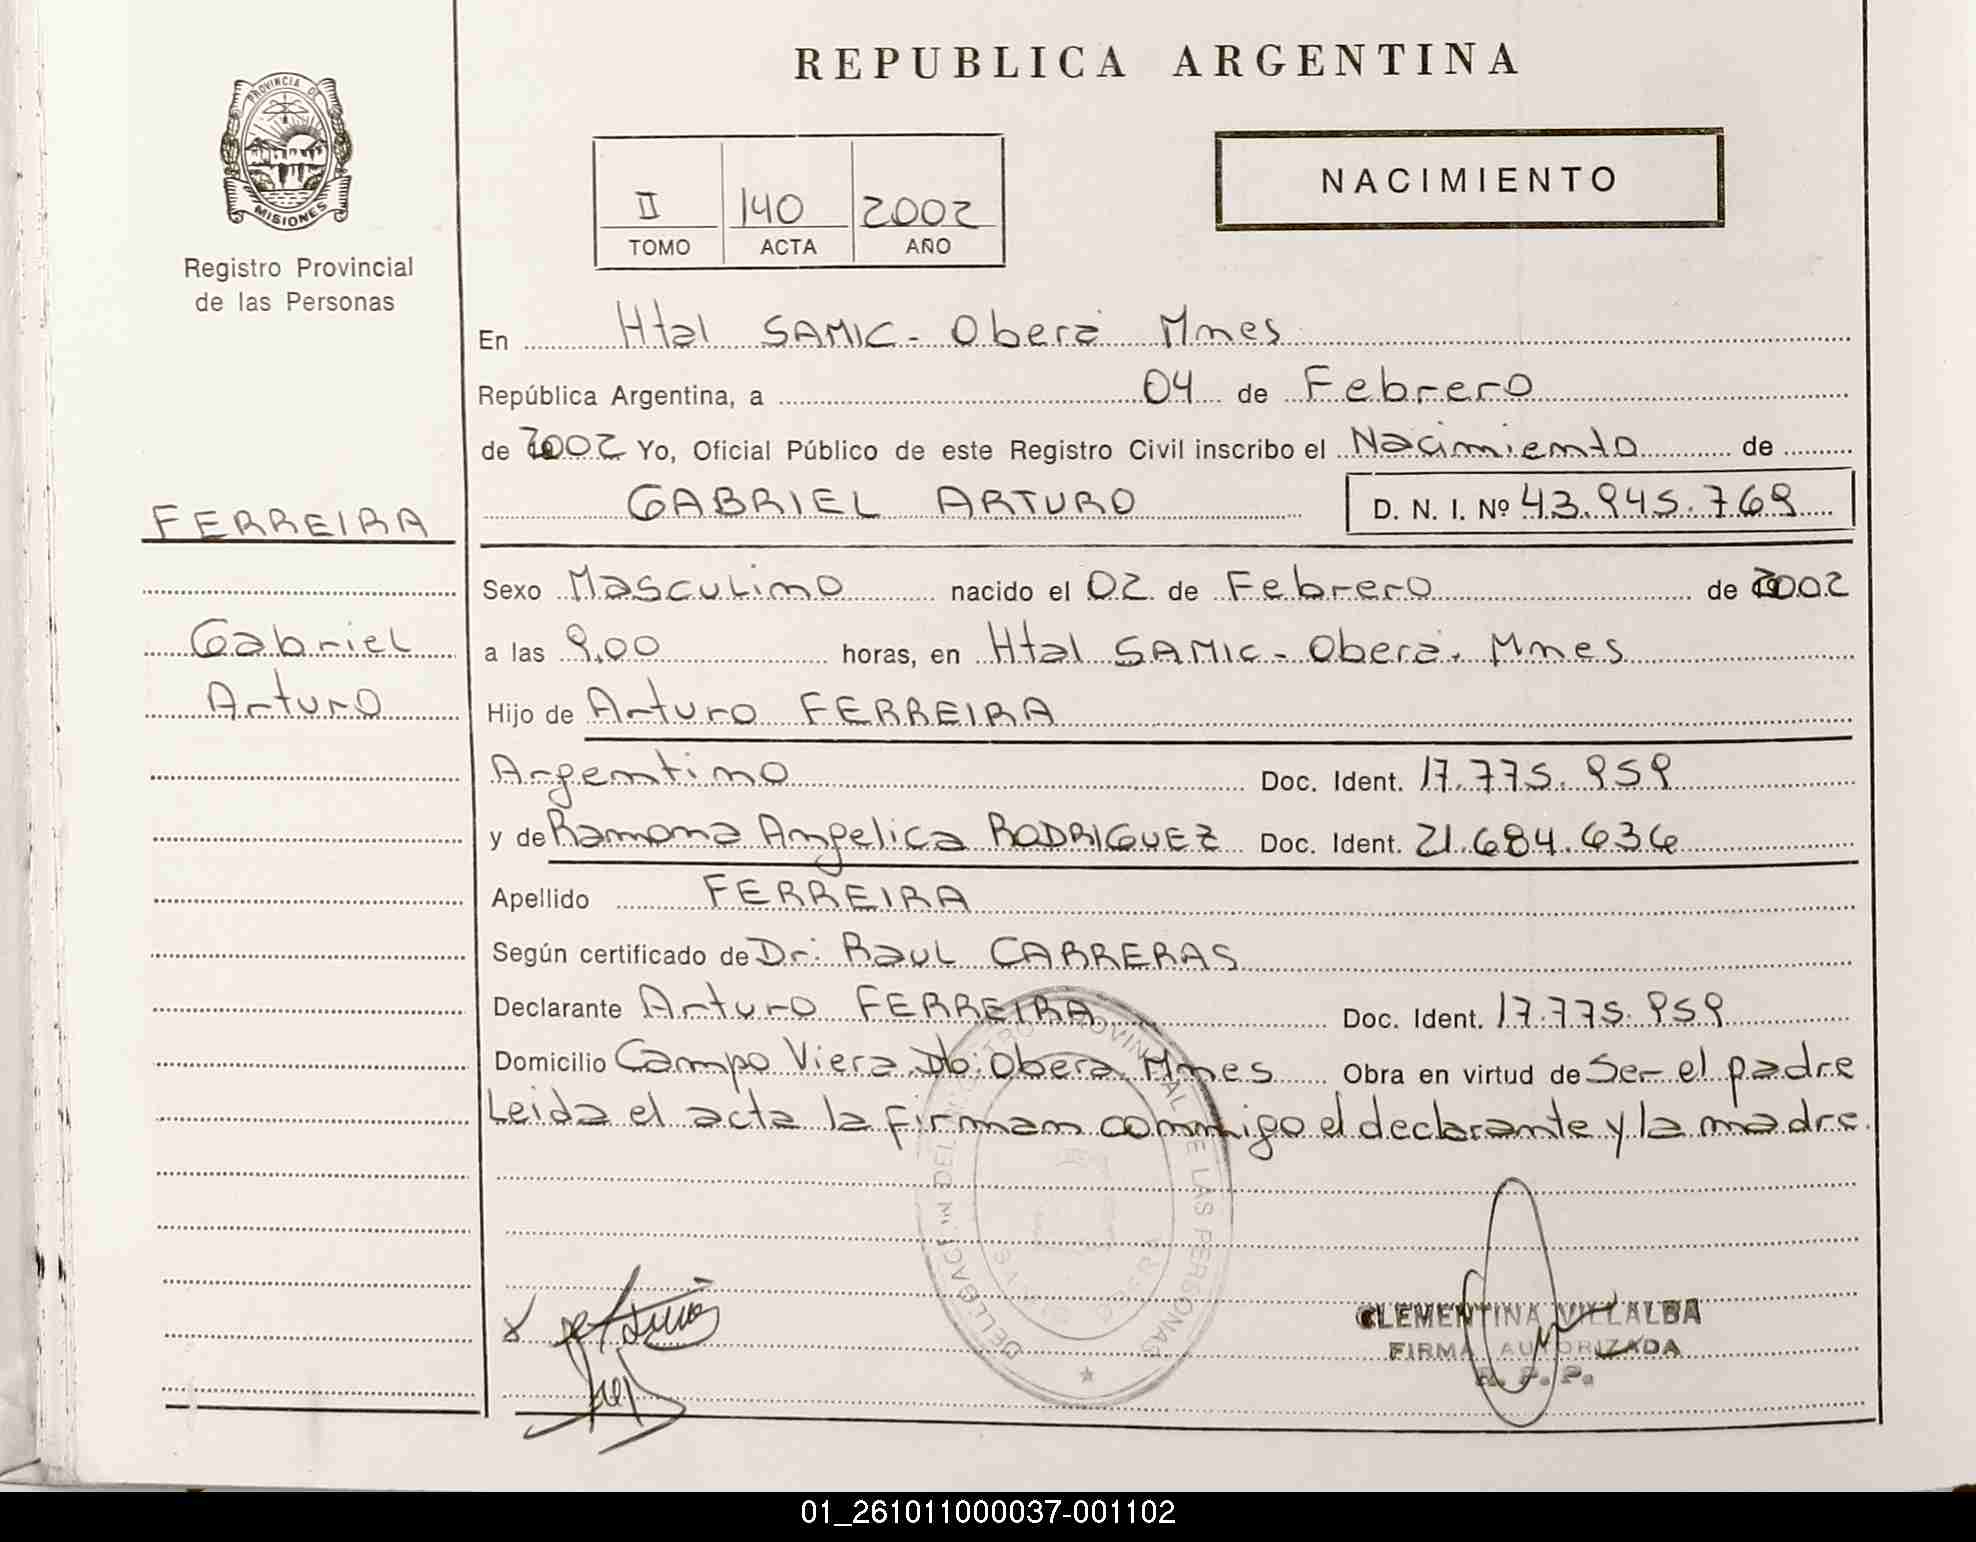 REPUBLICA ARGENTINA
PROVINCIA DE
MISIONES
Registro Provincial
de las Personas
II 140 2002
TOMO ACTA AÑO
NACIMIENTO
En Htal SAMIC - Oberá Mnes
República Argentina, a 04 de Febrero
de 2002 Yo, Oficial Público de este Registro Civil inscribo el Nacimiento de
GABRIEL ARTURO D. N. I. Nº 43.945.769
FERREIRA
Gabriel
Arturo
Sexo Masculino nacido el 02 de Febrero de 2002
a las 9,00 horas, en Htal SAMIC - Oberá. Mnes
Hijo de Arturo FERREIRA
Argentino Doc. Ident. 17.775.959
y de Ramona Angelica RODRIGUEZ Doc. Ident. 21.684.636
Apellido FERREIRA
Según certificado de Dr: Raul CARRERAS
Declarante Arturo FERREIRA Doc. Ident. 17.775.959
Domicilio Campo Viera Dto: Obera Mnes Obra en virtud de Ser el padre
Leida el acta la firman conmigo el declarante y la madre.
PROVINCIAL DE LAS PERSONAS
CLEMENTINA VILLALBA
FIRMA AUTORIZADA
R. P. P.
01_261011000037-001102